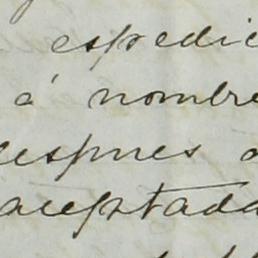 espedic
á nombre
despues a
aceptada